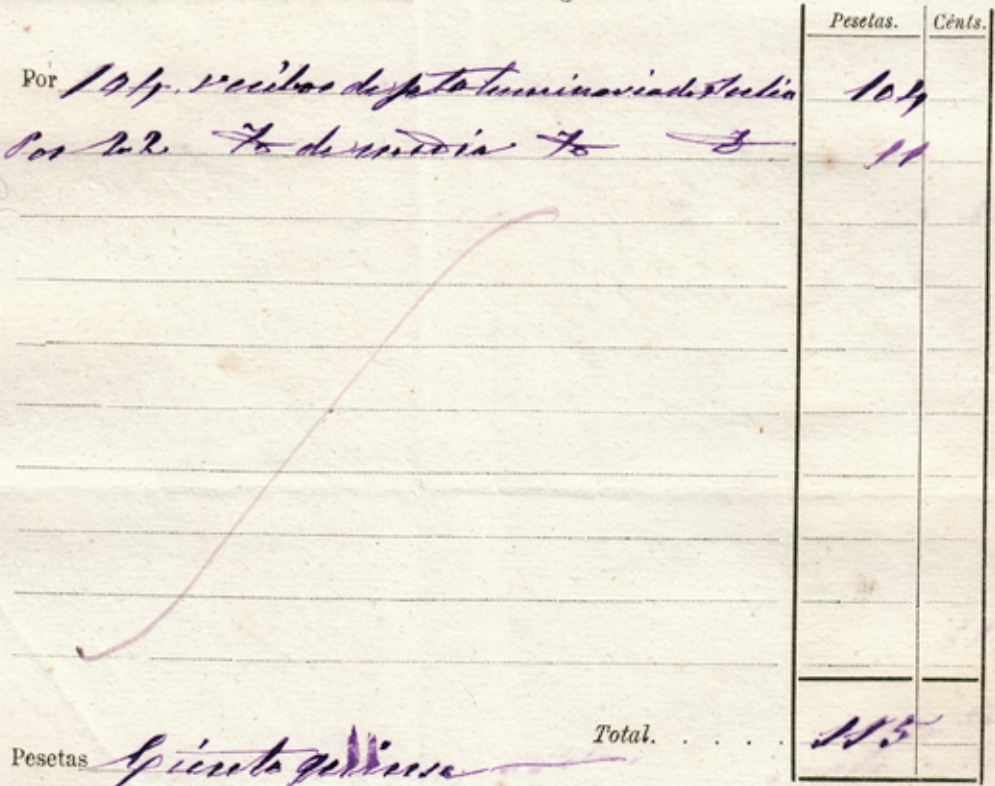 Pesetas. Cénts.
Por 104 recibos de pta luminaria de Julio 104
Por 22 de media 11
Total. . . . . 115
Pesetas Ciento quince